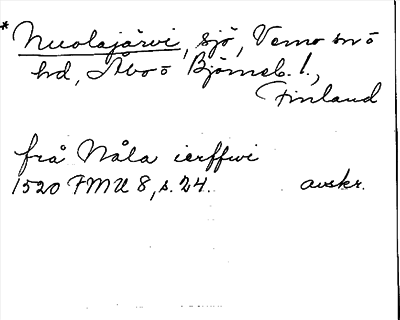 * Nuolajärvi, sjö, Vemo sn ō
hd, Åbo ō Björneb. l.,
Finland
frå Nåla ierffwi
1520 FMU 8, s. 24. avskr.